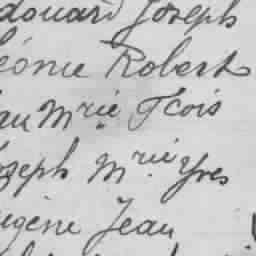 douard Joseph
éonie Robert
au Mrie Fcois
oseph Mrie Yves
ugène Jean